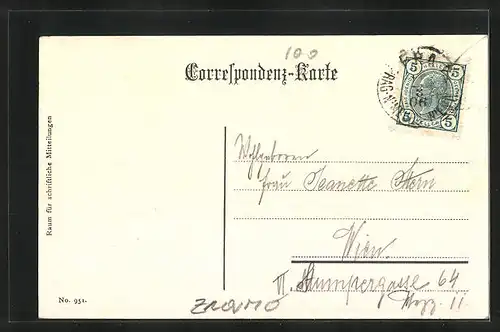 100
Correspondenz-Karte
GRAZ
5 5
5 5
Raum für schriftliche Mitteilungen
Wohlgeboren
Frau Jeanette Stern
Wien.
VI. Stumpergasse 64
No. 951.